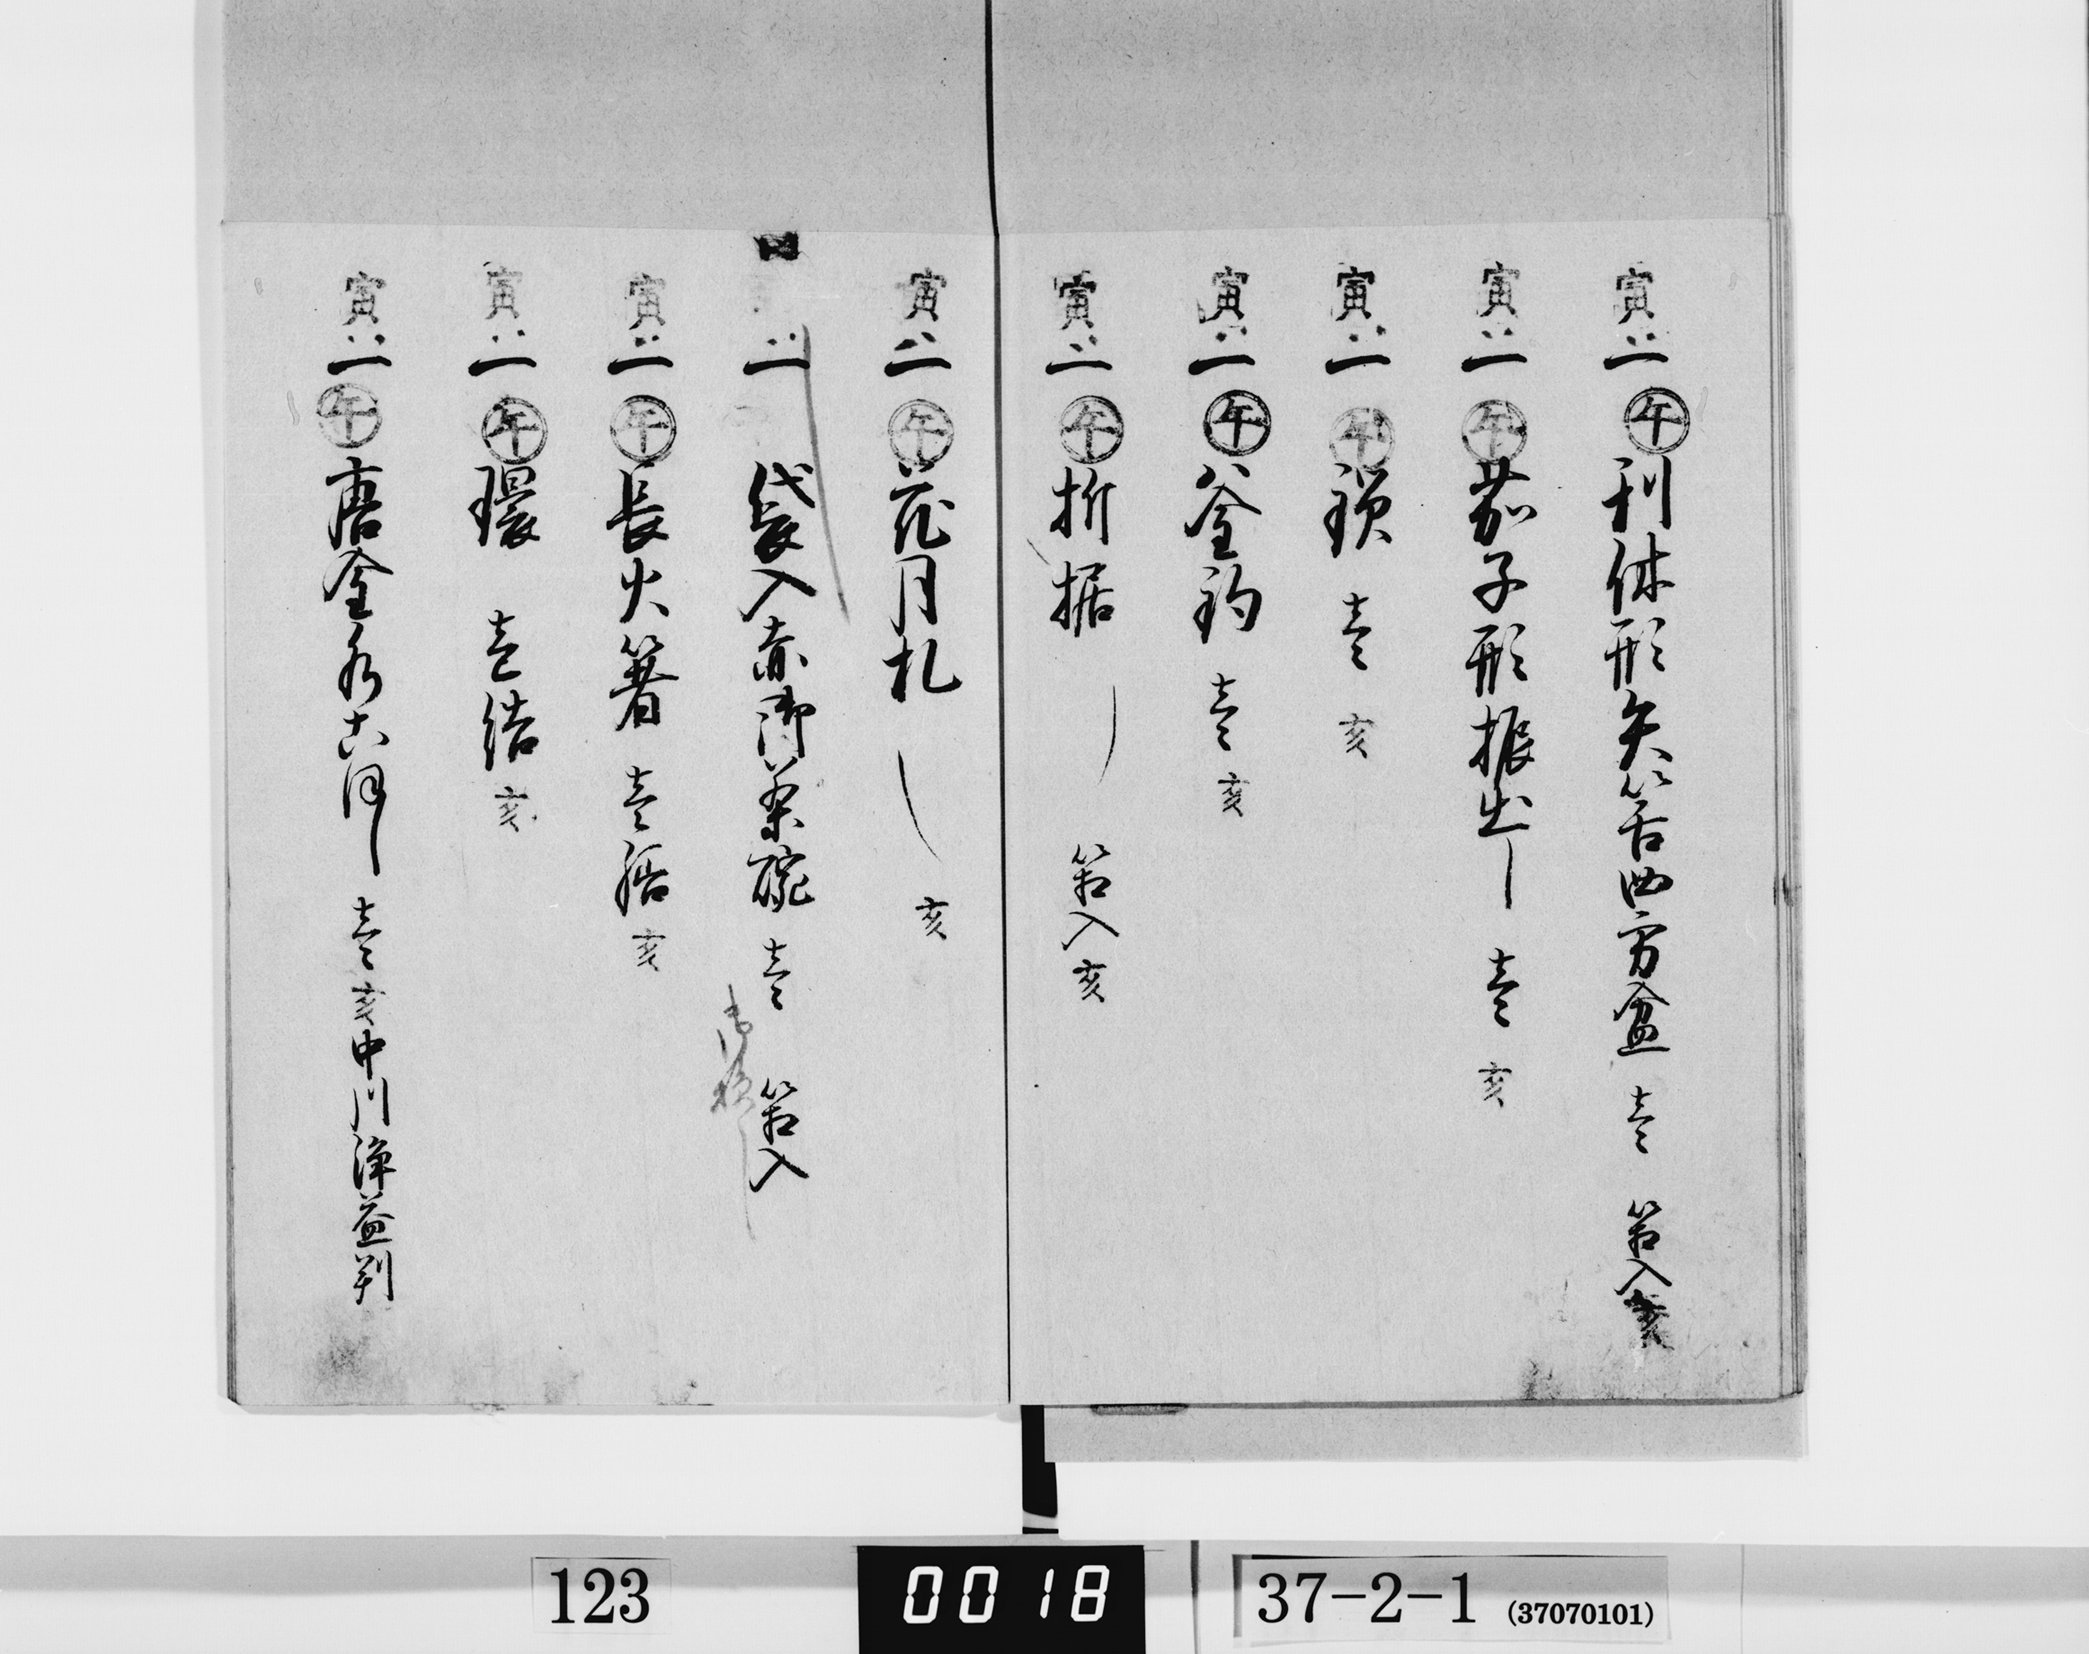 寅 一 午 利休形矢筈四方盆 壱 箱入 亥
寅 一 午 茄子形振出し 壱 亥
寅 一 午 鎖 壱 亥
寅 一 午 釜釣 壱 亥
寅 一 午 折据 箱入 亥
寅 一 午 花月札 亥
一 袋入赤御茶碗 壱 箱入
寅 一 午 長火箸 壱膳 亥
寅 一 午 環 壱結 亥
寅 一 午 唐金水こほし 壱 亥 中川浄益判
123
0018
37-2-1 (37070101)